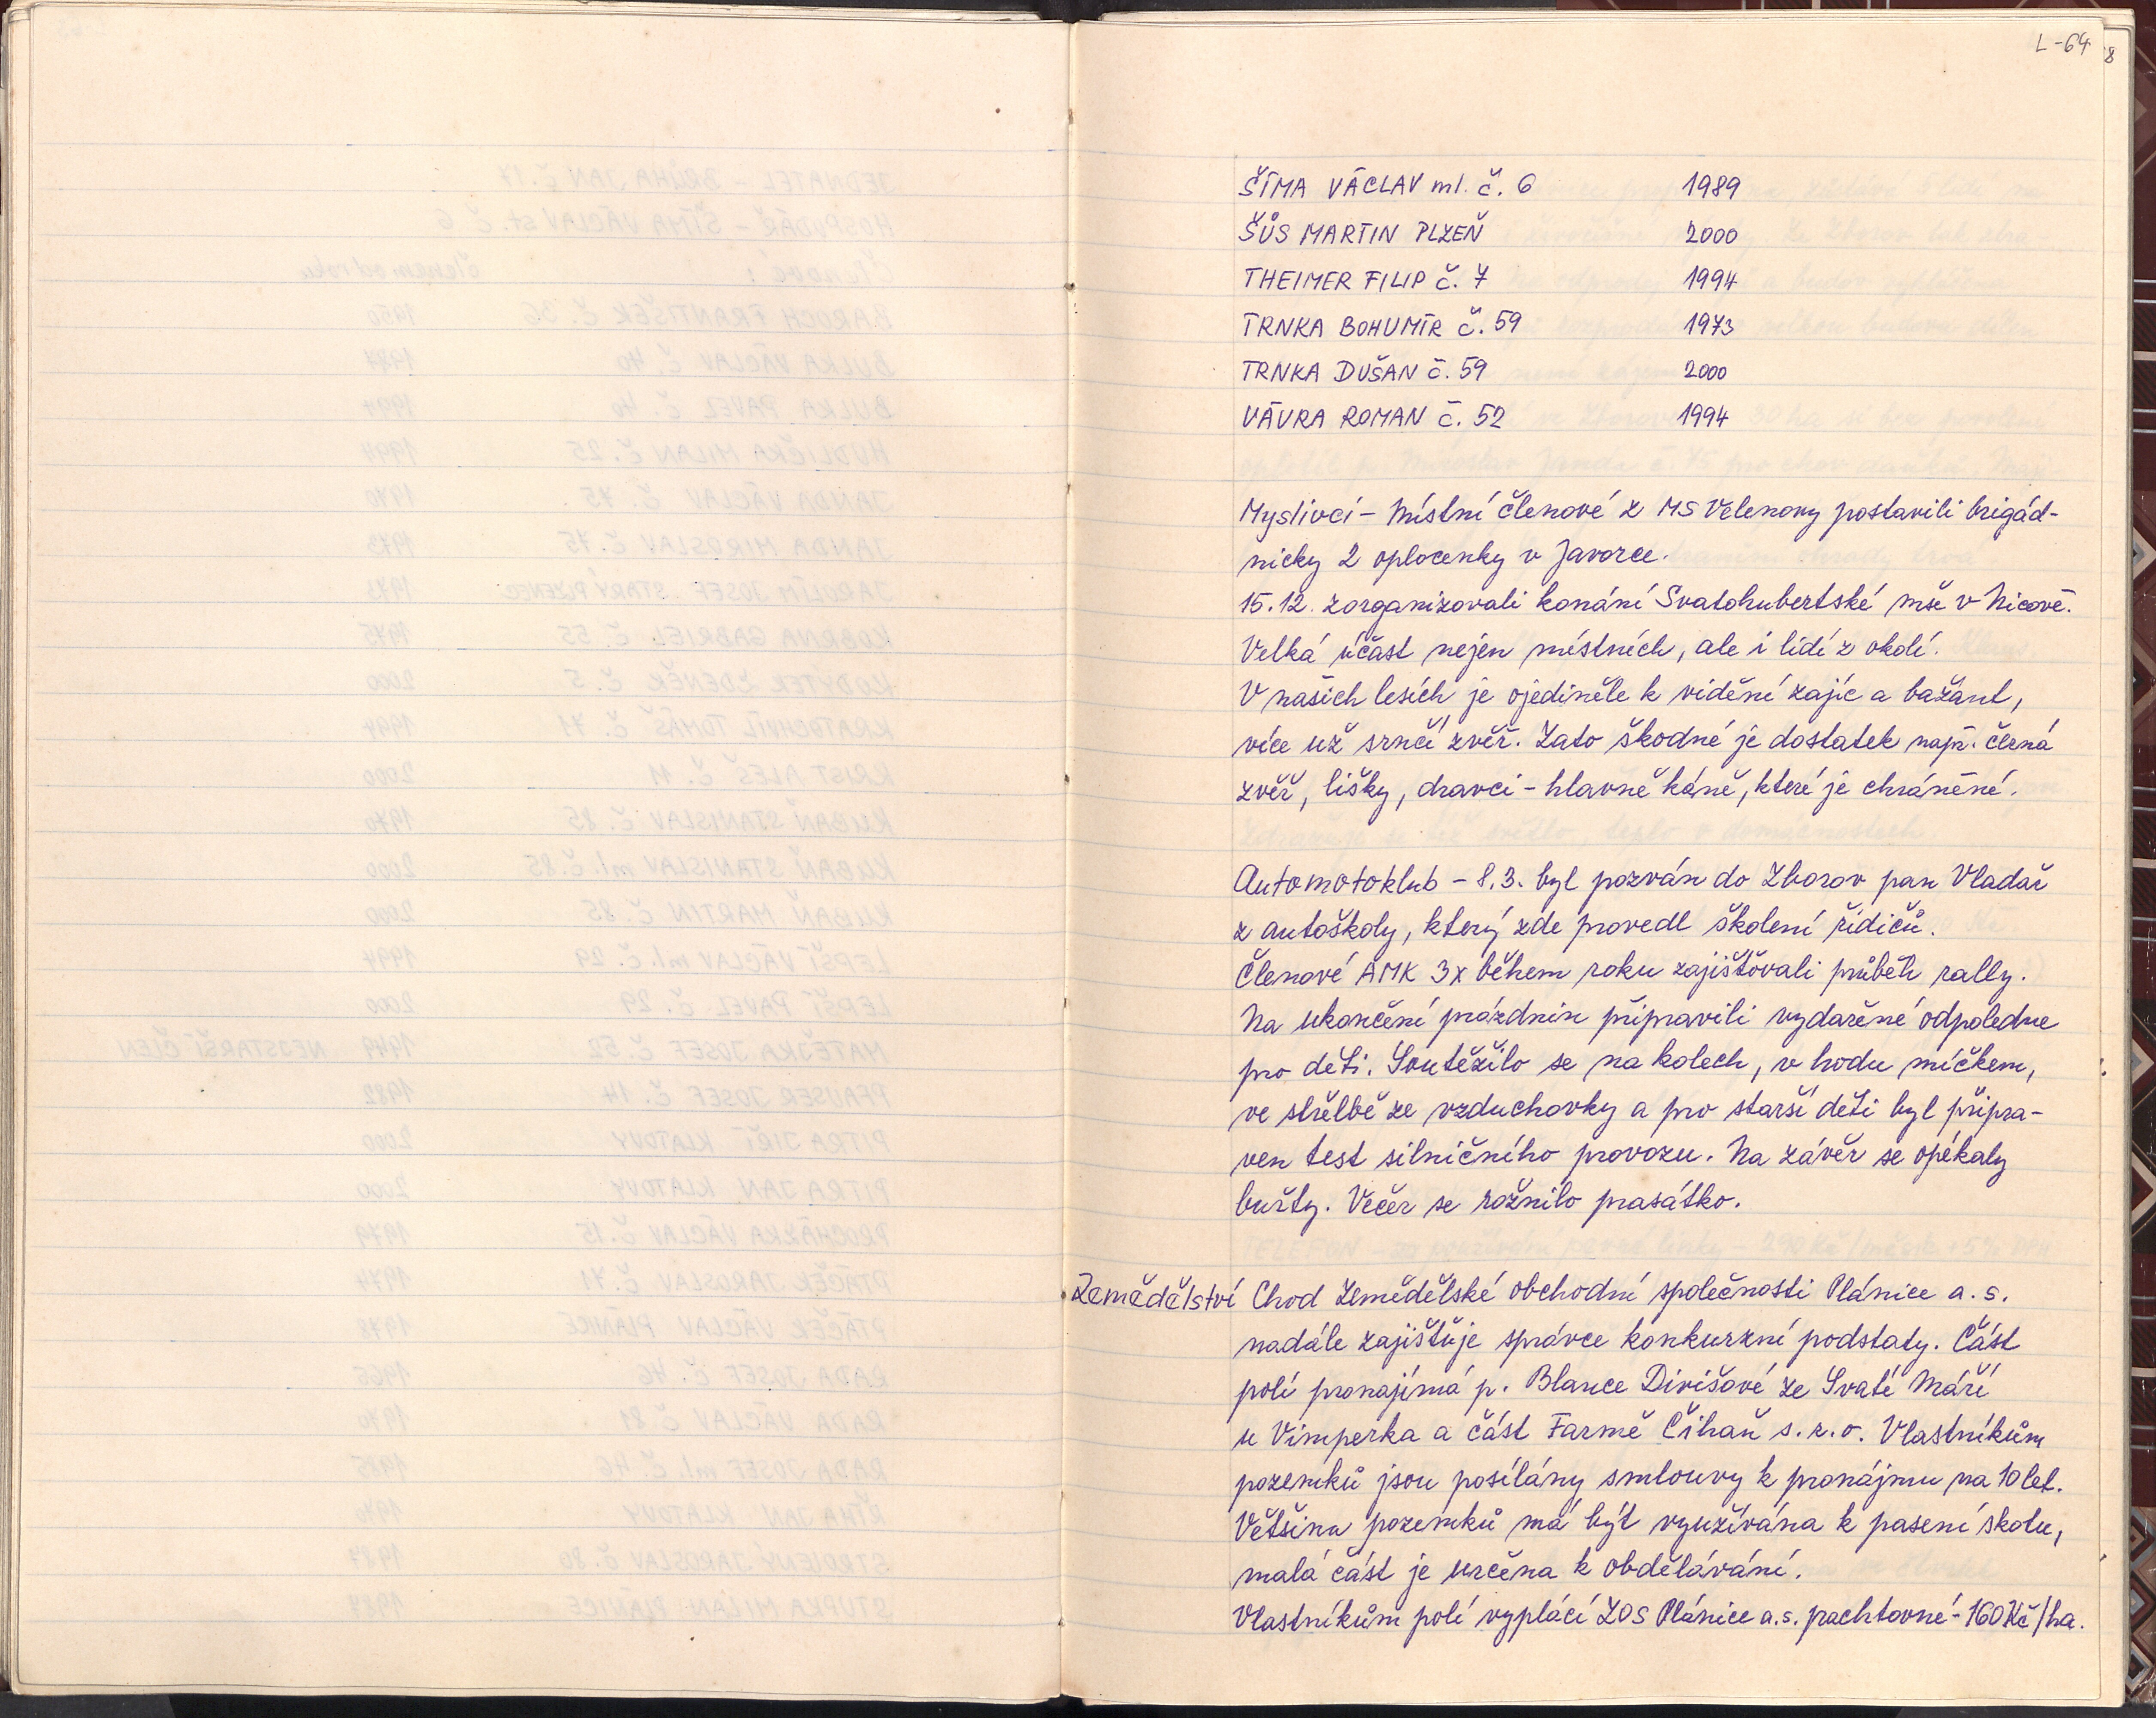 L-64
8
ŠÍMA VÁCLAV ml. č. 6 1989
ŠŮS MARTIN PLZEŇ 2000
THEIMER FILIP č. 7 1994
TRNKA BOHUMÍR č. 59 1973
TRNKA DUŠAN č. 59 2000
VÁVRA ROMAN č. 52 1994
Myslivci - Místní členové z MS Velenovy postavili brigád-
nicky 2 oplocenky v Javorce.
15.12. zorganizovali konání Svatohubertské mše v Nicově.
Velká účast nejen místních, ale i lidí z okolí.
V našich lesích je ojediněle k vidění zajíc a bažant,
více už srnčí zvěř. Zato škodné je dostatek např. černá
zvěř, lišky, dravci - hlavně káně, které je chráněné.
Automotoklub - 8.3. byl pozván do Zborov pan Vladař
z autoškoly, který zde provedl školení řidičů.
Členové AMK 3x během roku zajišťovali průběh rally.
Na ukončení prázdnin připravili vydařené odpoledne
pro děti. Soutěžilo se na kolech, v hodu míčkem,
ve střelbě ze vzduchovky a pro starší děti byl připra-
ven test silničního provozu. Na závěr se opékaly
buřty. Večer se rožnilo prasátko.
Zemědělství Chod Zemědělské obchodní společnosti Plánice a.s.
nadále zajišťuje správce konkurzní podstaty. Část
polí pronajímá p. Blance Divišové ze Svaté Máří
u Vimperka a část Farmě Číhaň s.r.o. Vlastníkům
pozemků jsou posílány smlouvy k pronájmu na 10 let.
Většina pozemků má být využívána k pasení skotu,
malá část je určena k obdělávání.
Vlastníkům polí vyplácí ZOS Plánice a.s. pachtovné - 160 Kč/ha.